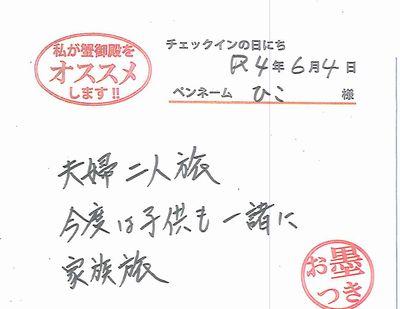 私が蟹御殿を
オススメ
します!!
チェックインの日にち
R4年6月4日
ペンネーム ひこ 様
夫婦二人旅
今度は子供も一諸に
家族旅
お墨
つき